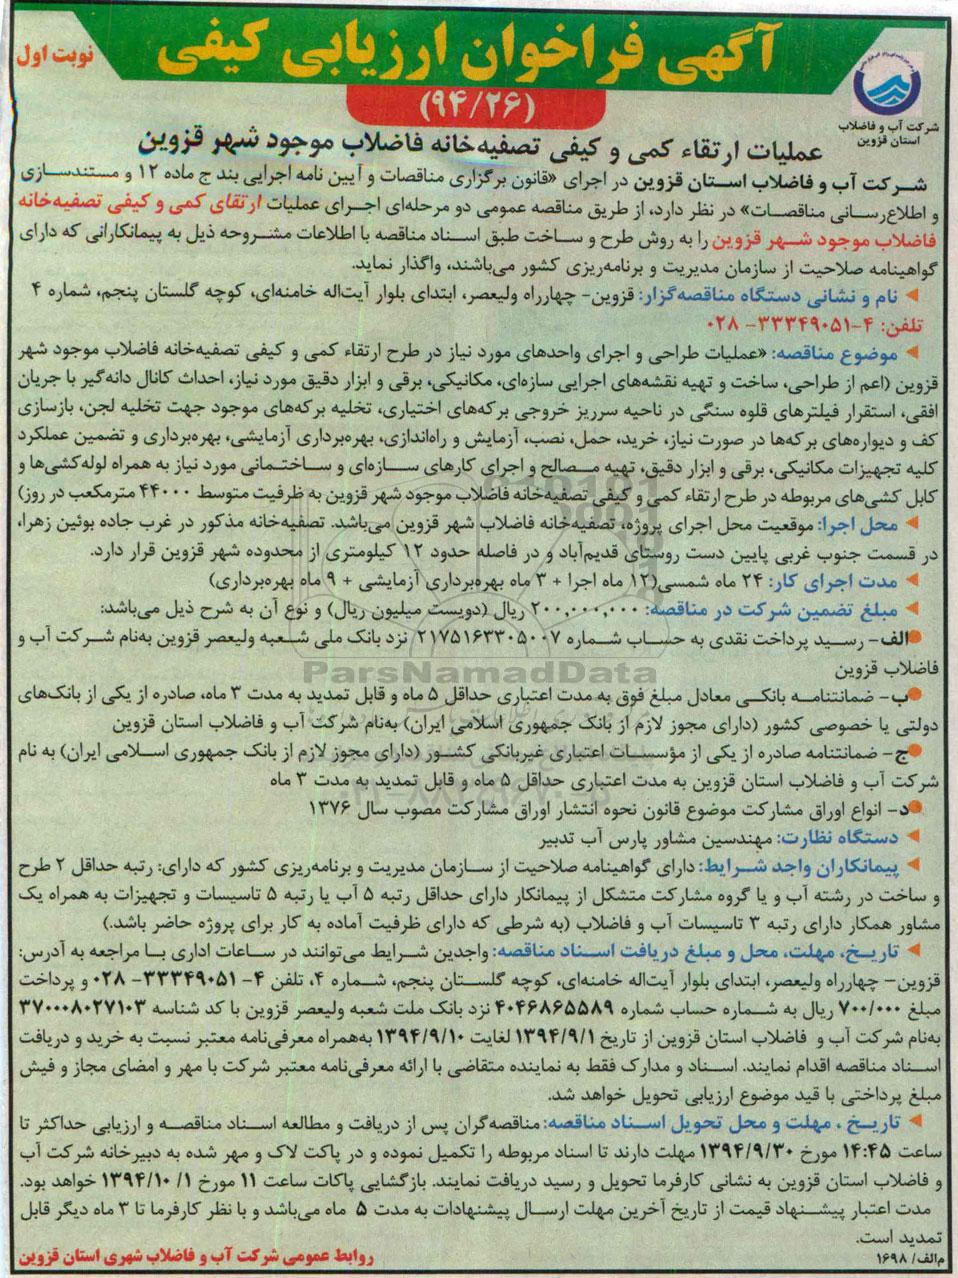 آگهی فراخوان ارزیابی کیفی
نوبت اول
(۹۴/۲۶)
شرکت آب و فاضلاب
استان قزوین
عملیات ارتقاء کمی و کیفی تصفیه‌خانه فاضلاب موجود شهر قزوین
شرکت آب و فاضلاب استان قزوین در اجرای «قانون برگزاری مناقصات و آیین نامه اجرایی بند ج ماده ۱۲ و مستندسازی
و اطلاع‌رسانی مناقصات» در نظر دارد، از طریق مناقصه عمومی دو مرحله‌ای اجرای عملیات ارتقای کمی و کیفی تصفیه‌خانه
فاضلاب موجود شهر قزوین را به روش طرح و ساخت طبق اسناد مناقصه با اطلاعات مشروحه ذیل به پیمانکارانی که دارای
گواهینامه صلاحیت از سازمان مدیریت و برنامه‌ریزی کشور می‌باشند، واگذار نماید.
نام و نشانی دستگاه مناقصه‌گزار: قزوین- چهارراه ولیعصر، ابتدای بلوار آیت‌اله خامنه‌ای، کوچه گلستان پنجم، شماره ۴
تلفن: ۴-۳۳۳۴۹۰۵۱- ۰۲۸
موضوع مناقصه: «عملیات طراحی و اجرای واحدهای مورد نیاز در طرح ارتقاء کمی و کیفی تصفیه‌خانه فاضلاب موجود شهر
قزوین (اعم از طراحی، ساخت و تهیه نقشه‌های اجرایی سازه‌ای، مکانیکی، برقی و ابزار دقیق مورد نیاز، احداث کانال دانه‌گیر با جریان
افقی، استقرار فیلترهای قلوه سنگی در ناحیه سرریز خروجی برکه‌های اختیاری، تخلیه برکه‌های موجود جهت تخلیه لجن، بازسازی
کف و دیواره‌های برکه‌ها در صورت نیاز، خرید، حمل، نصب، آزمایش و راه‌اندازی، بهره‌برداری آزمایشی، بهره‌برداری و تضمین عملکرد
کلیه تجهیزات مکانیکی، برقی و ابزار دقیق، تهیه مصالح و اجرای کارهای سازه‌ای و ساختمانی مورد نیاز به همراه لوله‌کشی‌ها و
کابل کشی‌های مربوطه در طرح ارتقاء کمی و کیفی تصفیه‌خانه فاضلاب موجود شهر قزوین به ظرفیت متوسط ۴۴۰۰۰ مترمکعب در روز)
محل اجرا: موقعیت محل اجرای پروژه، تصفیه‌خانه فاضلاب شهر قزوین می‌باشد. تصفیه‌خانه مذکور در غرب جاده بوئین زهرا،
در قسمت جنوب غربی پایین دست روستای قدیم‌آباد و در فاصله حدود ۱۲ کیلومتری از محدوده شهر قزوین قرار دارد.
مدت اجرای کار: ۲۴ ماه شمسی(۱۲ ماه اجرا + ۳ ماه بهره‌برداری آزمایشی + ۹ ماه بهره‌برداری)
مبلغ تضمین شرکت در مناقصه: ۲۰۰,۰۰۰,۰۰۰ ریال (دویست میلیون ریال) و نوع آن به شرح ذیل می‌باشد:
الف- رسید پرداخت نقدی به حساب شماره ۲۱۷۵۱۶۳۳۰۵۰۰۷ نزد بانک ملی شعبه ولیعصر قزوین به‌نام شرکت آب و
فاضلاب قزوین
ParsNamadData
ب- ضمانتنامه بانکی معادل مبلغ فوق به مدت اعتباری حداقل ۵ ماه و قابل تمدید به مدت ۳ ماه، صادره از یکی از بانک‌های
دولتی یا خصوصی کشور (دارای مجوز لازم از بانک جمهوری اسلامی ایران) به‌نام شرکت آب و فاضلاب استان قزوین
ج- ضمانتنامه صادره از یکی از مؤسسات اعتباری غیربانکی کشور (دارای مجوز لازم از بانک جمهوری اسلامی ایران) به نام
شرکت آب و فاضلاب استان قزوین به مدت اعتباری حداقل ۵ ماه و قابل تمدید به مدت ۳ ماه
د- انواع اوراق مشارکت موضوع قانون نحوه انتشار اوراق مشارکت مصوب سال ۱۳۷۶
دستگاه نظارت: مهندسین مشاور پارس آب تدبیر
پیمانکاران واجد شرایط: دارای گواهینامه صلاحیت از سازمان مدیریت و برنامه‌ریزی کشور که دارای: رتبه حداقل ۲ طرح
و ساخت در رشته آب و یا گروه مشارکت متشکل از پیمانکار دارای حداقل رتبه ۵ آب یا رتبه ۵ تاسیسات و تجهیزات به همراه یک
مشاور همکار دارای رتبه ۳ تاسیسات آب و فاضلاب (به شرطی که دارای ظرفیت آماده به کار برای پروژه حاضر باشد.)
تاریخ، مهلت، محل و مبلغ دریافت اسناد مناقصه: واجدین شرایط می‌توانند در ساعات اداری با مراجعه به آدرس:
قزوین- چهارراه ولیعصر، ابتدای بلوار آیت‌اله خامنه‌ای، کوچه گلستان پنجم، شماره ۴، تلفن ۴- ۳۳۳۴۹۰۵۱- ۰۲۸ و پرداخت
مبلغ ۷۰۰/۰۰۰ ریال به شماره حساب شماره ۴۰۴۶۸۶۵۵۸۹ نزد بانک ملت شعبه ولیعصر قزوین با کد شناسه ۳۷۰۰۰۸۰۲۷۱۰۳
به‌نام شرکت آب و فاضلاب استان قزوین از تاریخ ۱۳۹۴/۹/۱ لغایت ۱۳۹۴/۹/۱۰ به‌همراه معرفی‌نامه معتبر نسبت به خرید و دریافت
اسناد مناقصه اقدام نمایند. اسناد و مدارک فقط به نماینده متقاضی با ارائه معرفی‌نامه معتبر شرکت با مهر و امضای مجاز و فیش
مبلغ پرداختی با قید موضوع ارزیابی تحویل خواهد شد.
تاریخ ، مهلت و محل تحویل اسناد مناقصه: مناقصه‌گران پس از دریافت و مطالعه اسناد مناقصه و ارزیابی حداکثر تا
ساعت ۱۴:۴۵ مورخ ۱۳۹۴/۹/۳۰ مهلت دارند تا اسناد مربوطه را تکمیل نموده و در پاکت لاک و مهر شده به دبیرخانه شرکت آب
و فاضلاب استان قزوین به نشانی کارفرما تحویل و رسید دریافت نمایند. بازگشایی پاکات ساعت ۱۱ مورخ ۱۳۹۴/۱۰/۱ خواهد بود.
مدت اعتبار پیشنهاد قیمت از تاریخ آخرین مهلت ارسال پیشنهادات به مدت ۵ ماه می‌باشد و با نظر کارفرما تا ۳ ماه دیگر قابل
تمدید است.
م‌الف/ ۱۶۹۸
روابط عمومی شرکت آب و فاضلاب شهری استان قزوین